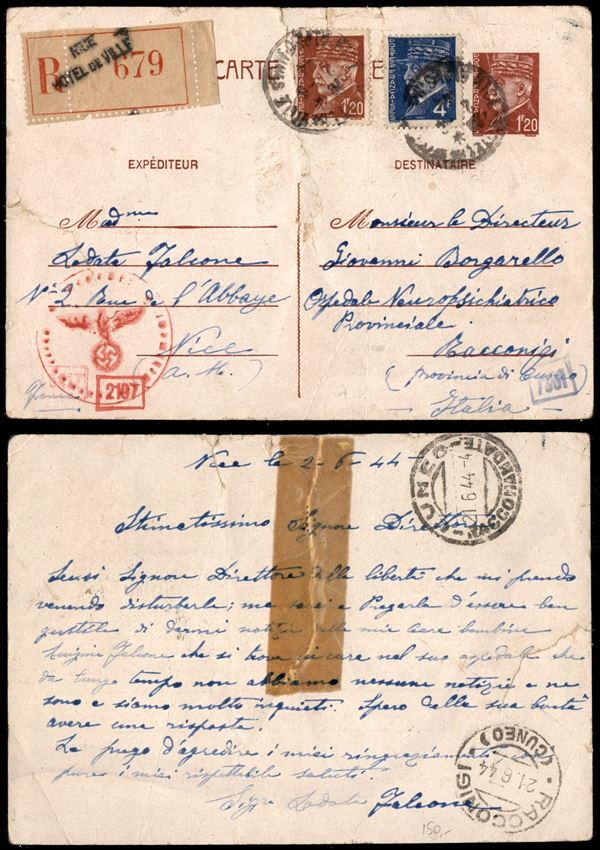 NICE
HOTEL DE VILLE
R 679
CARTE
1F20
4F
1F20
EXPÉDITEUR
DESTINATAIRE
Madme
Lodate Falcone
No 2 Rue de l'Abbaye
Nice
(a. M.)
2107
Monsieur le Directeur
Giovanni Borgarello
Ospedale Neuropsichiatrico
Provinciale
Racconigi
(provincia di Cuneo)
Italia
Nice le 2-6-44
CUNEO RACCOMANDATE
21.6.44-4
Stimatissimo Signore Direttore
Scusi Signore Direttore della libertà che mi prendo
venendo disturberle; ma sarei a Pregarla d'essere ben
gentile di darmi notizie delle mie care bambine
Luigina Falcone che si trova in cure nel suo ospedale che
da lungo tempo non abbiamo nessune notizie e ne
sono e siamo molto inquieti. Spero della sua bontà
avere una risposta.
Le prego d'agredire i miei ringraziamenti
pure i miei rispettabile saluti.
Lodate Falcone
RACCONIGI (CUNEO)
21.6.44
150,-